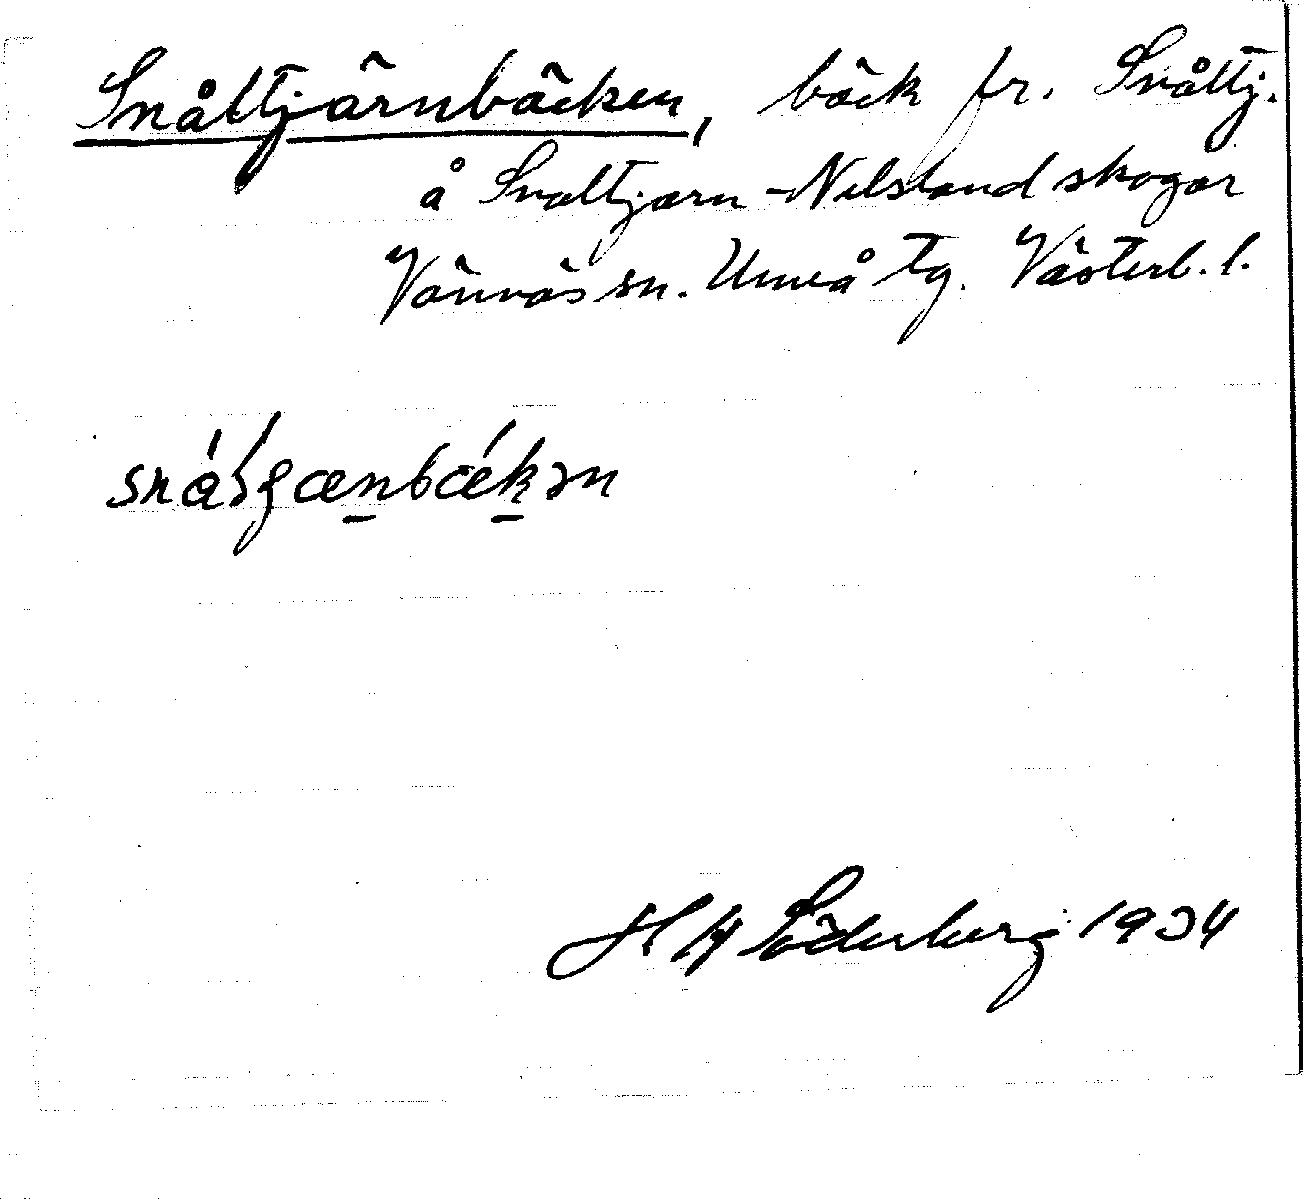 Snåltjärnbäcken, bäck fr. Snåltj.
å Snaltjarn-Nilsland skogar
Vännäs sn. Umeå tg. Västerb. l.
Söderberg 1934